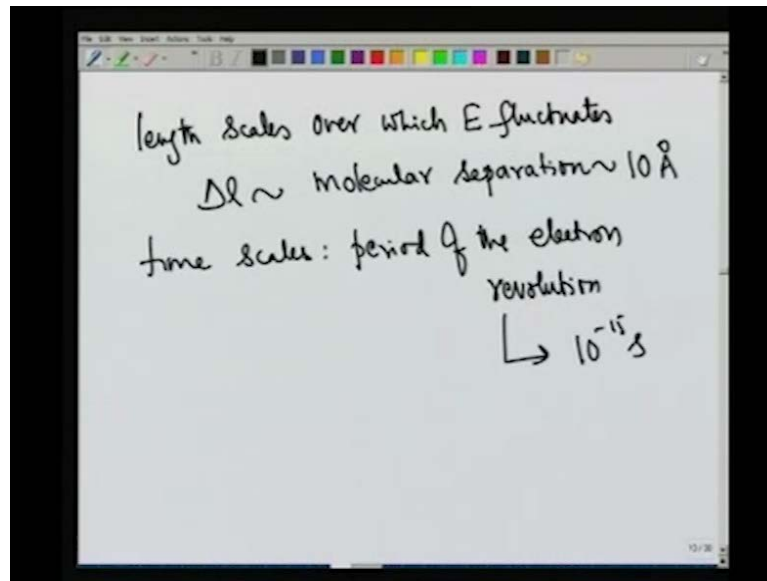 File Edit View Insert Actions Tools Help
length scales over which E fluctuates
Δl ~ molecular separation ~ 10 Å
time scales : period of the electron
revolution
↳ 10⁻¹⁵ s